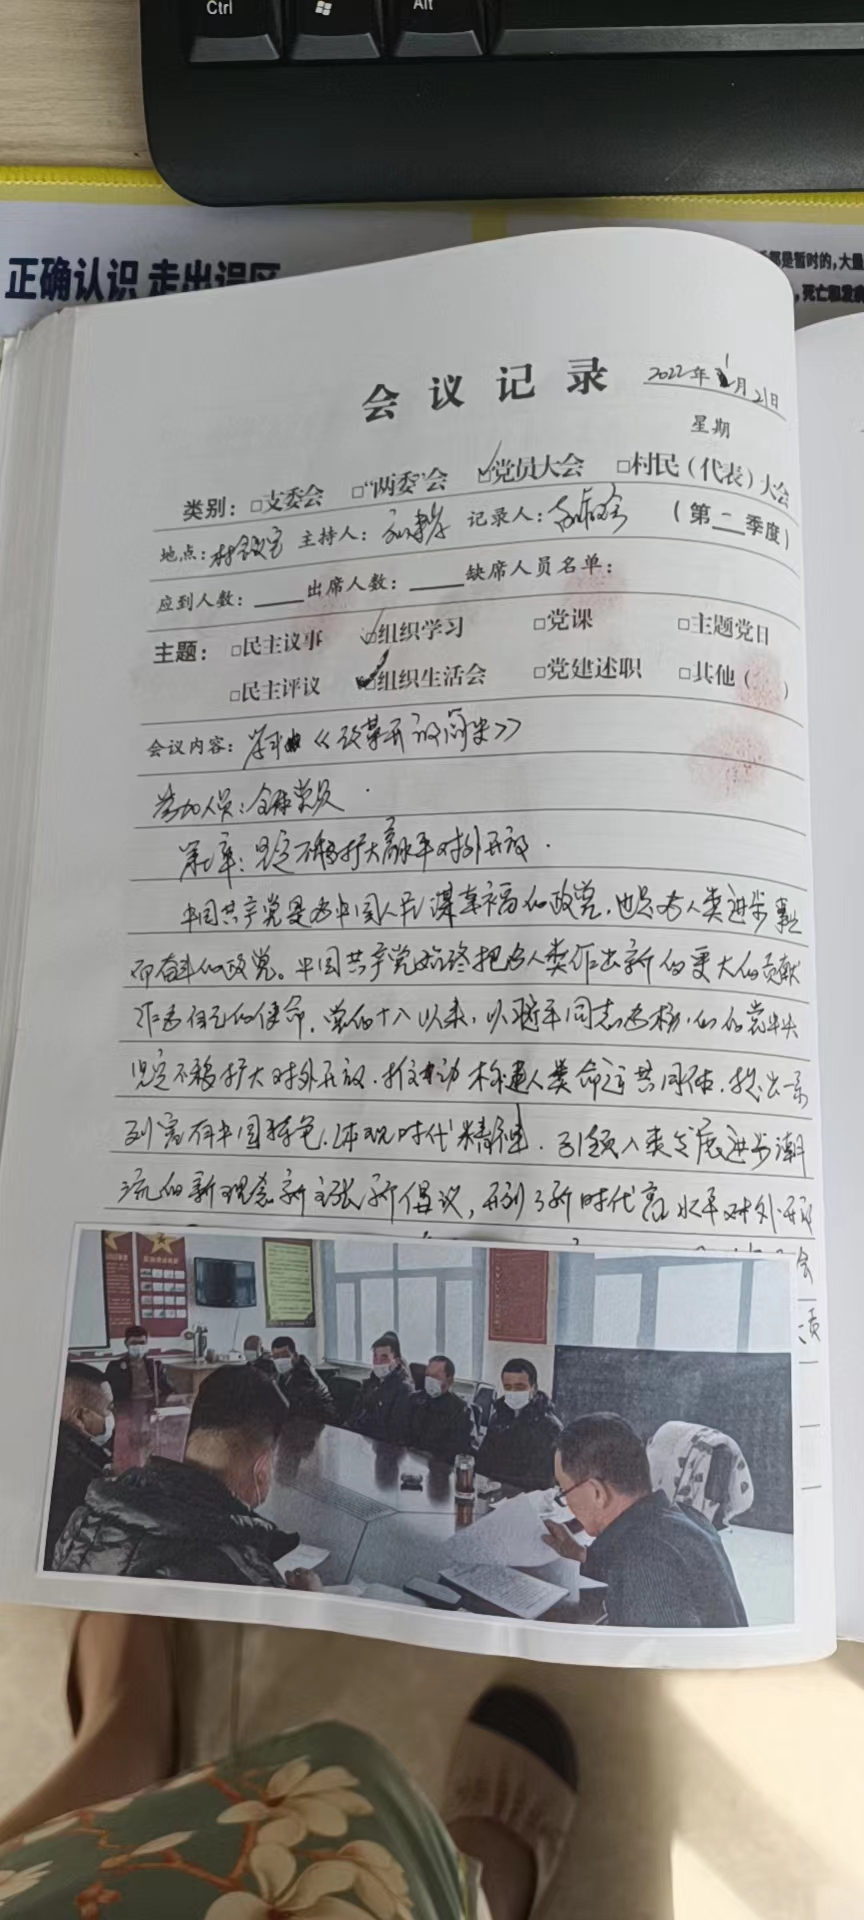 Ctrl
Alt
正确认识 走出误区
都是暂时的,大量
死亡和发病
会议记录
2022年1月21日
星期
类别: □支委会 □“两委”会 ☑党员大会 □村民(代表)大会
地点:村会议室 主持人: 记录人: (第一季度)
应到人数: 出席人数: 缺席人员名单:
主题: □民主议事 ☑组织学习 □党课 □主题党日
□民主评议 ☑组织生活会 □党建述职 □其他( )
会议内容:学习《改革开放简史》
参加人员:全体党员
第七章:坚定不移扩大高水平对外开放.
中国共产党是为中国人民谋幸福的政党,也是为人类进步事业
而奋斗的政党。中国共产党始终把为人类作出新的更大的贡献
作为自己的使命.党的十八以来,以习近平同志为核心的党中央
坚定不移扩大对外开放.推动构建人类命运共同体.提出一系
列富有中国特色.体现时代精神.引领人类发展进步潮
流的新理念新主张新倡议,开创了新时代高水平对外开放
会
贡